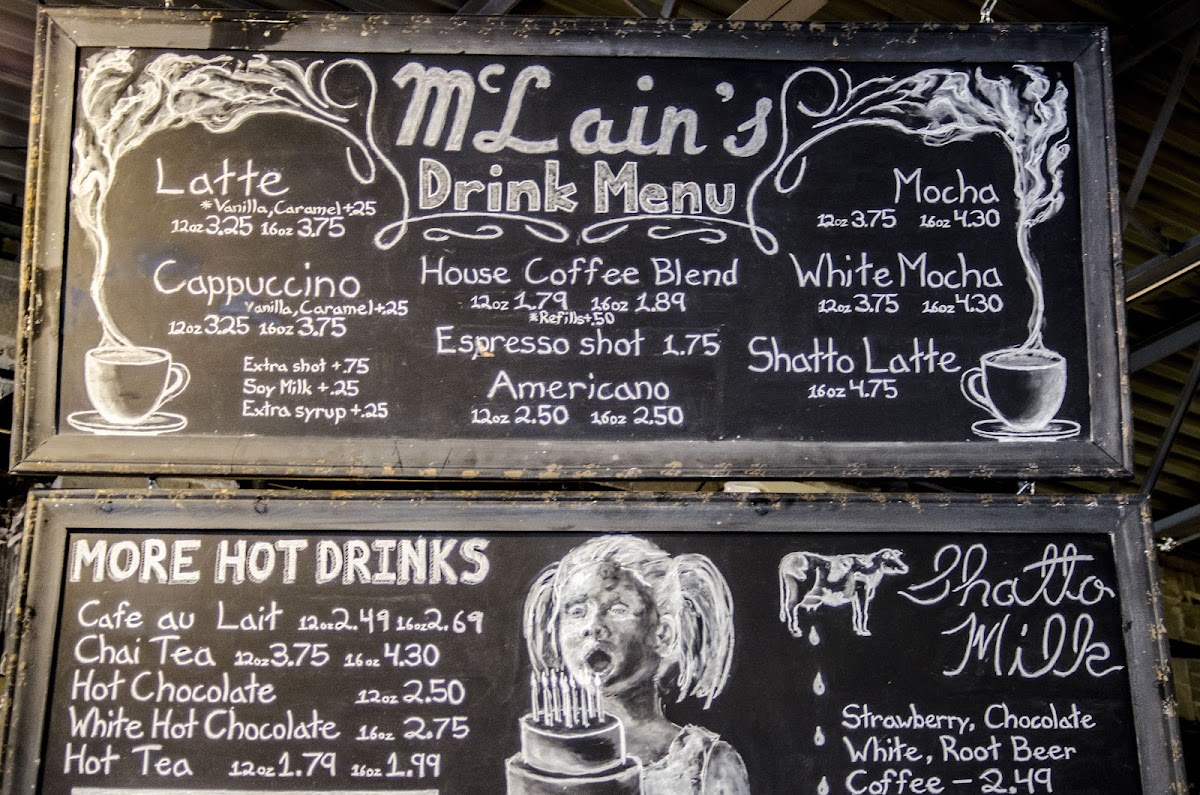 McLain's
Drink Menu
Latte
*Vanilla, Caramel +.25
12oz 3.25 16oz 3.75
Cappuccino
Vanilla, Caramel +.25
12oz 3.25 16oz 3.75
Extra shot +.75
Soy Milk +.25
Extra syrup +.25
House Coffee Blend
12oz 1.79 16oz 1.89
*Refills +.50
Espresso shot 1.75
Americano
12oz 2.50 16oz 2.50
Mocha
12oz 3.75 16oz 4.30
White Mocha
12oz 3.75 16oz 4.30
Shatto Latte
16oz 4.75
MORE HOT DRINKS
Cafe au Lait 12oz 2.49 16oz 2.69
Chai Tea 12oz 3.75 16oz 4.30
Hot Chocolate 12oz 2.50
White Hot Chocolate 16oz 2.75
Hot Tea 12oz 1.79 16oz 1.99
Shatto
Milk
Strawberry, Chocolate
White, Root Beer
Coffee - 2.49